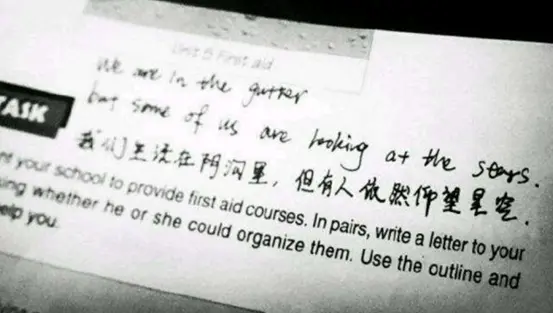 Unit 5 First aid
We are in the gutter
but some of us are looking at the stars.
TASK
我们生活在阴沟里，但有人依然仰望星空.
nt your school to provide first aid courses. In pairs, write a letter to your
ing whether he or she could organize them. Use the outline and
elp you.